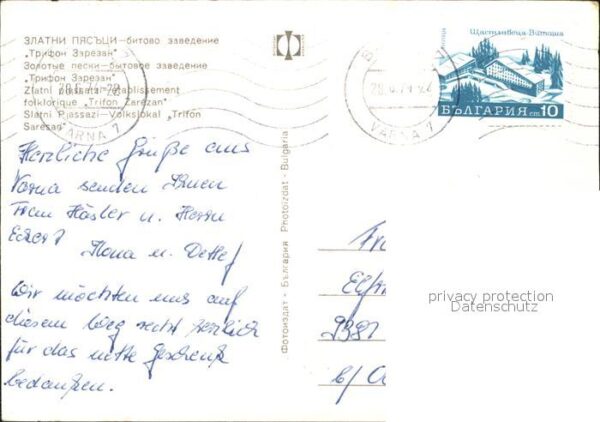 ЗЛАТНИ ПЯСЪЦИ—битово заведение
„Трифон Зарезан"
Золотые пески—бытовое заведение
„Трифон Зарезан"
Zlatni piassatzi établissement
folklorique „Trifon Zarezan"
Slatni Pjassazi—Volkslokal „Trifon
Saresan"
VARNA 7
Herzliche Grüße aus
Varna senden Ihnen
Frau Häsler u. Herrn
Eckert
Ilona u. Detlef
Wir möchten uns auf
diesem Weg recht herzlich
für das nette Geschenk
bedanken.
Фотоиздат - България Photoizdat - Bulgaria
Щастливеца-Витоша
БЪЛГАРИЯ ст. 10
VARNA 7
Fr
9381
b/
privacy protection
Datenschutz